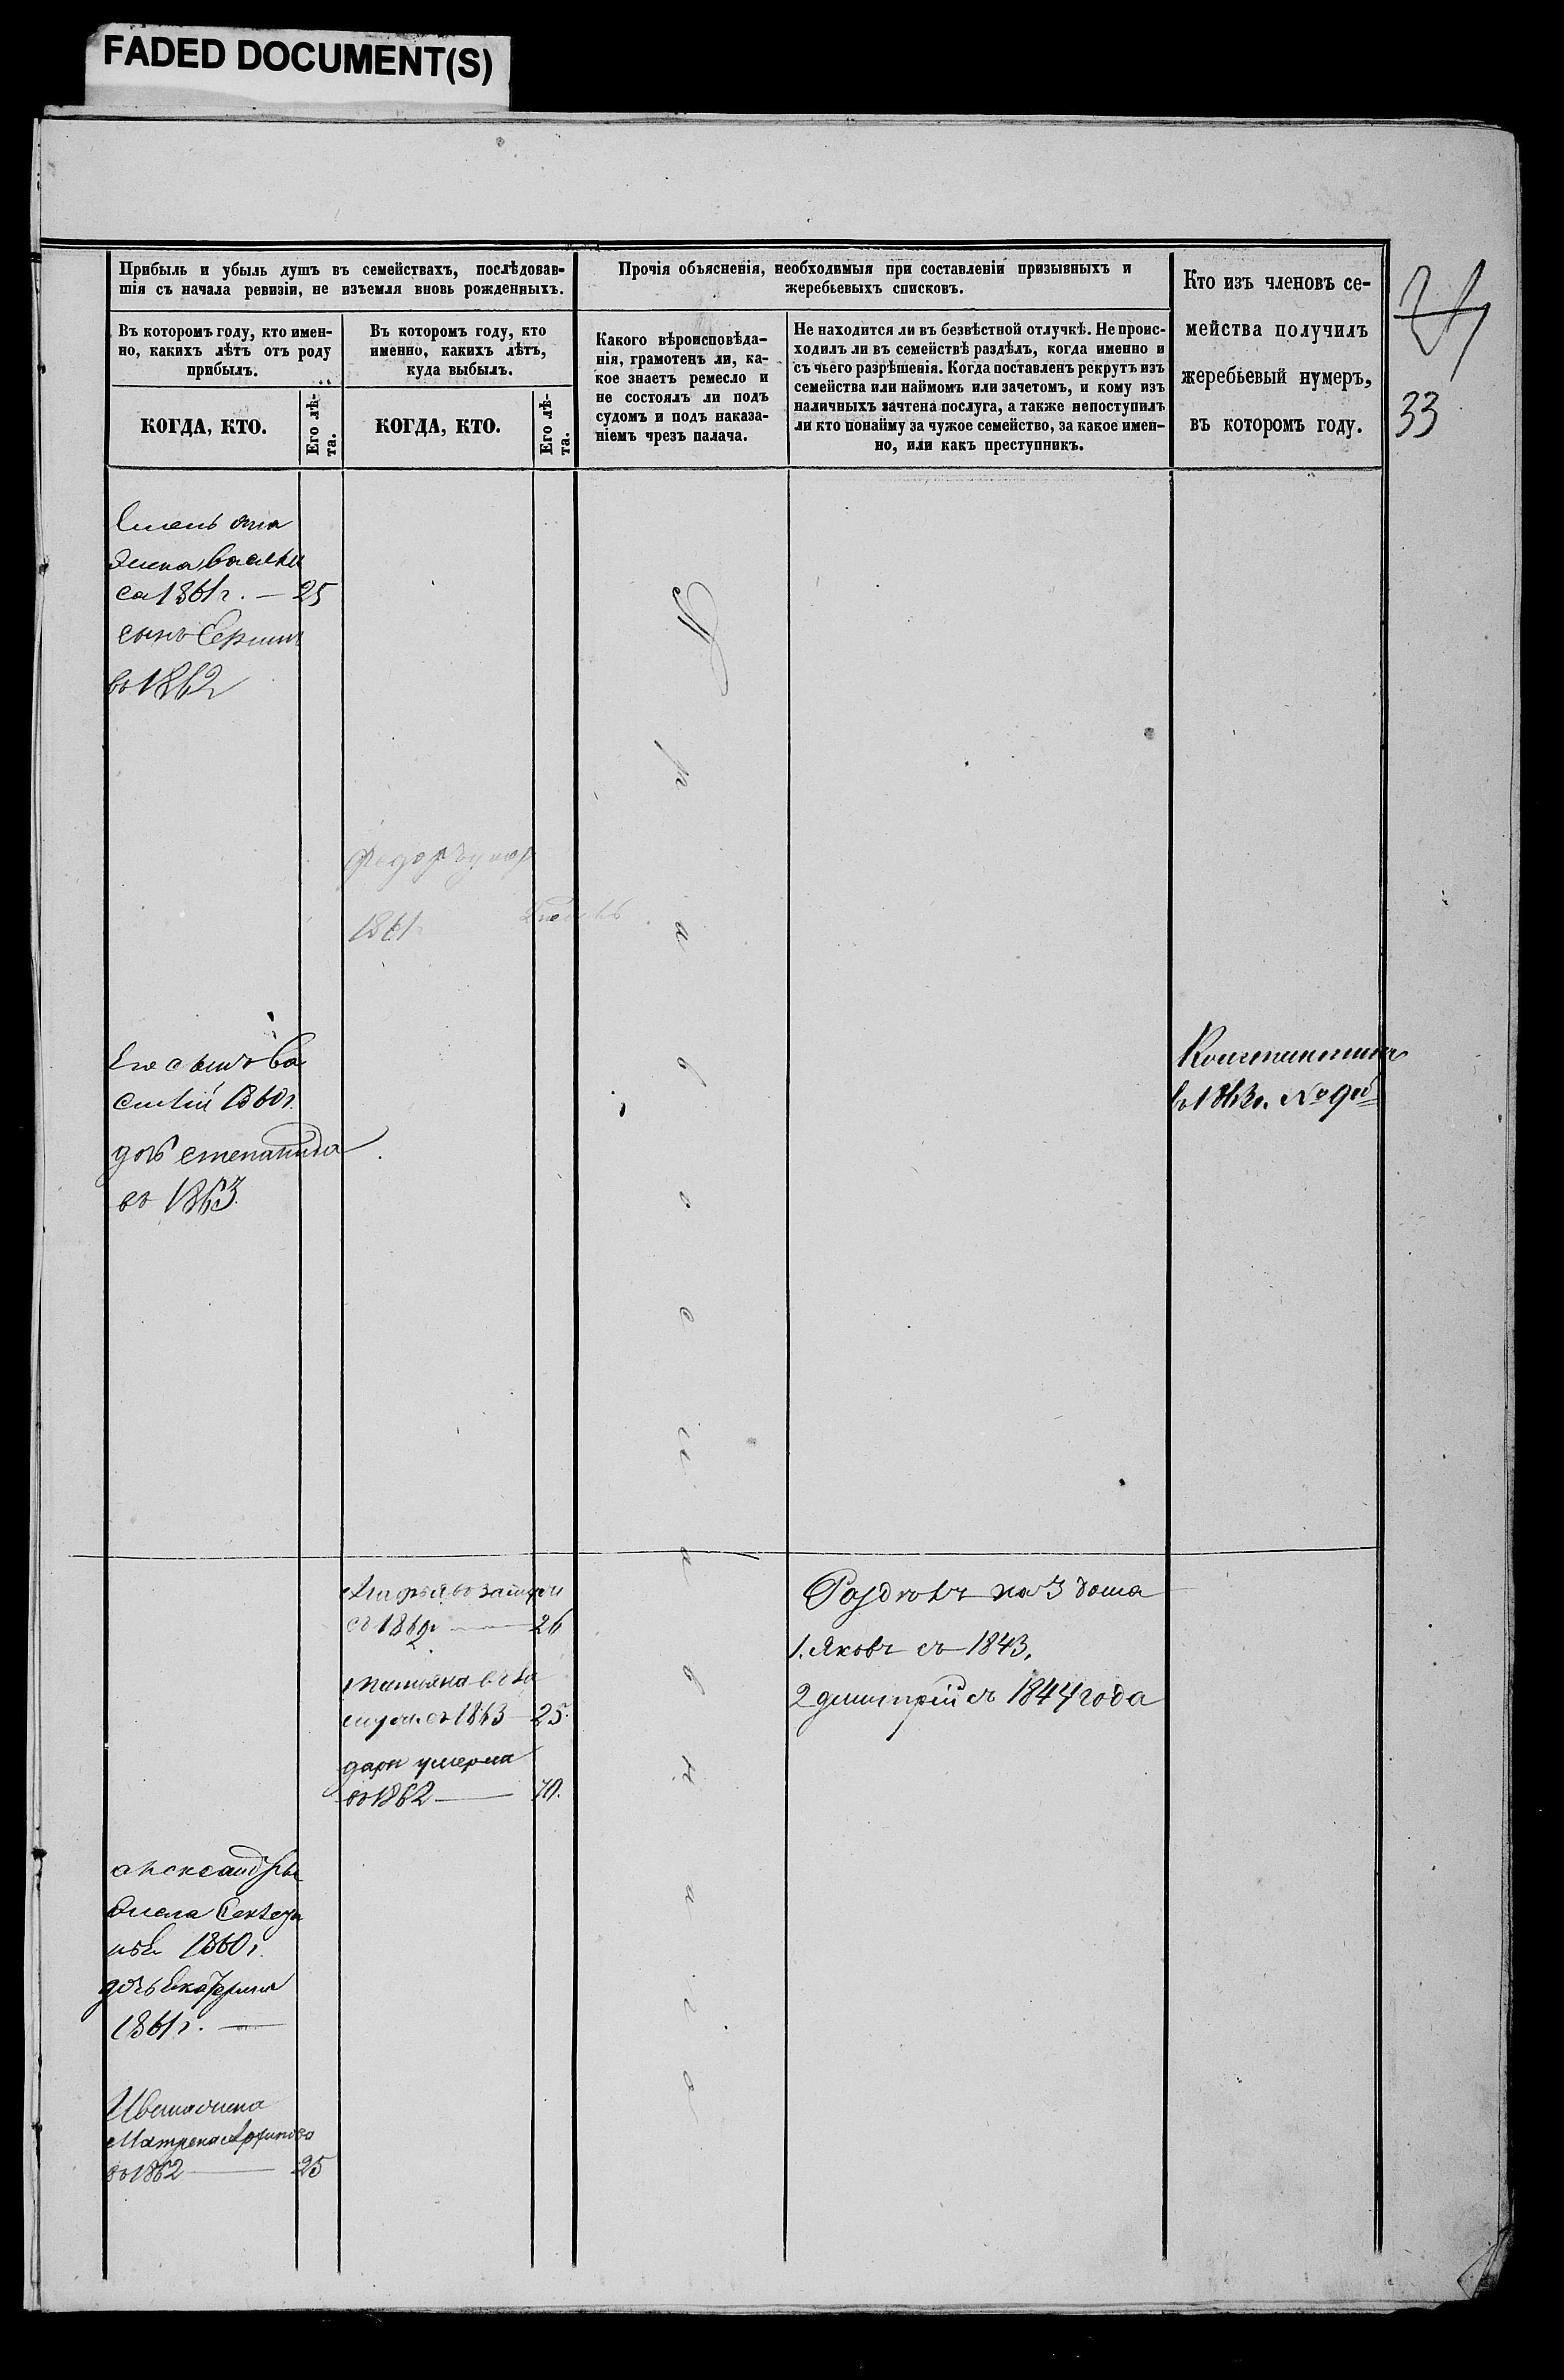 FADED DOCUMENT(S)
Прибыль и убыль душъ въ семействахъ, послѣдовав-
шія съ начала ревизіи, не изъемля вновь рожденныхъ.
Въ которомъ году, кто имен-
но, какихъ лѣтъ отъ роду
прибылъ.
КОГДА, КТО.
Его лѣ-
та.
Въ которомъ году, кто
именно, какихъ лѣтъ,
куда выбылъ.
КОГДА, КТО.
Его лѣ-
та.
Прочія объясненія, необходимыя при составленіи призывныхъ и
жеребьевыхъ списковъ.
Какого вѣроисповѣда-
нія, грамотенъ ли, ка-
кое знаетъ ремесло и
не состоялъ ли подъ
судомъ и подъ наказа-
ніемъ чрезъ палача.
Не находится ли въ безвѣстной отлучкѣ. Не проис-
ходилъ ли въ семействѣ раздѣлъ, когда именно и
съ чьего разрѣшенія. Когда поставленъ рекрутъ изъ
семейства или наймомъ или зачетомъ, и кому изъ
наличныхъ зачтена послуга, а также непоступилъ
ли кто понайму за чужое семейство, за какое имен-
но, или какъ преступникъ.
Кто изъ членовъ се-
мейства получилъ
жеребьевый нумеръ,
въ которомъ году.
33
1861г. — 25
сынъ
въ 1862
Федоръ умер
1861
Его сынъ Ва
силій 1860г.
дочь степанида
въ 1863
Константинъ
в 1863г. № 9й
П р а в о с л а в н а г о
въ замуж
съ 1862г — 26
татьяна въ за
муж. съ 1863 — 25
дарья умерла
въ 1862 — 70.
Раздѣлъ на 3 дома
1. Яковъ съ 1843.
2 дмитрій съ 1844 года
александръ
1860г.
дочь Екатерина
1861г. —
Ивана жена
Матрена
въ 1862 — 25